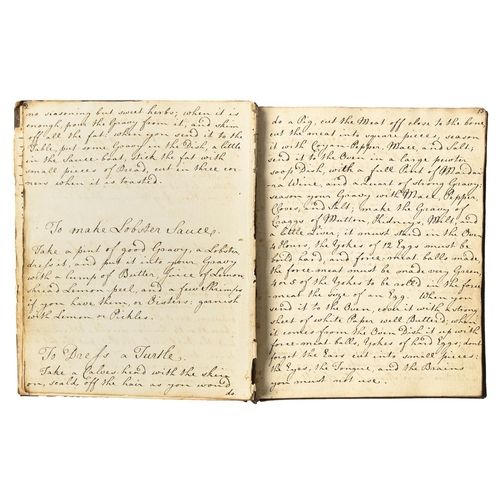 no seasoning but sweet herbs; when it is
enough, pour the Gravy from it, and skim
off all the fat, when you send it to the
Table, put some Gravy in the Dish, a little
in the Sauce boat, stick the fat with
small pieces of Bread, cut in three cor=
ners when it is toasted.
To make Lobster Sauce.
Take a pint of good Gravy, a Lobster
dress it, and put it into your Gravy
with a lump of Butter, Juice of Lemon
shread Lemon peel, and a few Shrimps
if you have them, or Oisters; garnish
with Lemon or Pickles.
To Dress a Turtle.
Take a Calves head with the skin
on, scald off the hair as you would
do
do a Pig, cut the Meat off close to the bone
cut the meat into square pieces, season
it with Cayn-Pepper, Mace, and Salt;
send it to the Oven in a large pewter
soop Dish, with a full Pint of Mandei=
ra Wine, and a Quart of strong Gravy;
season your Gravy with Mace, Pepper,
Cloves, and Salt; make the Gravy of
Craggs of Mutton, Kidneys, Milt, and
a little Liver; it must stand in the Oven
4 Hours, the Yokes of 12 Eggs must be
boild hard, and force-meat balls made,
the force-meat must be made very Green,
4 or 5 of the Yokes to be rolld in the force
meat the size of an Egg. When you
send it to the Oven, cover it with a strong
sheet of white Paper well Butterd; when
it comes from the Oven Dish it up with
force-meat balls, Yokes of hard Eggs; dont
forget the Ears cut into small pieces:
the Eyes, the Tongue, and the Brains
you must not use.